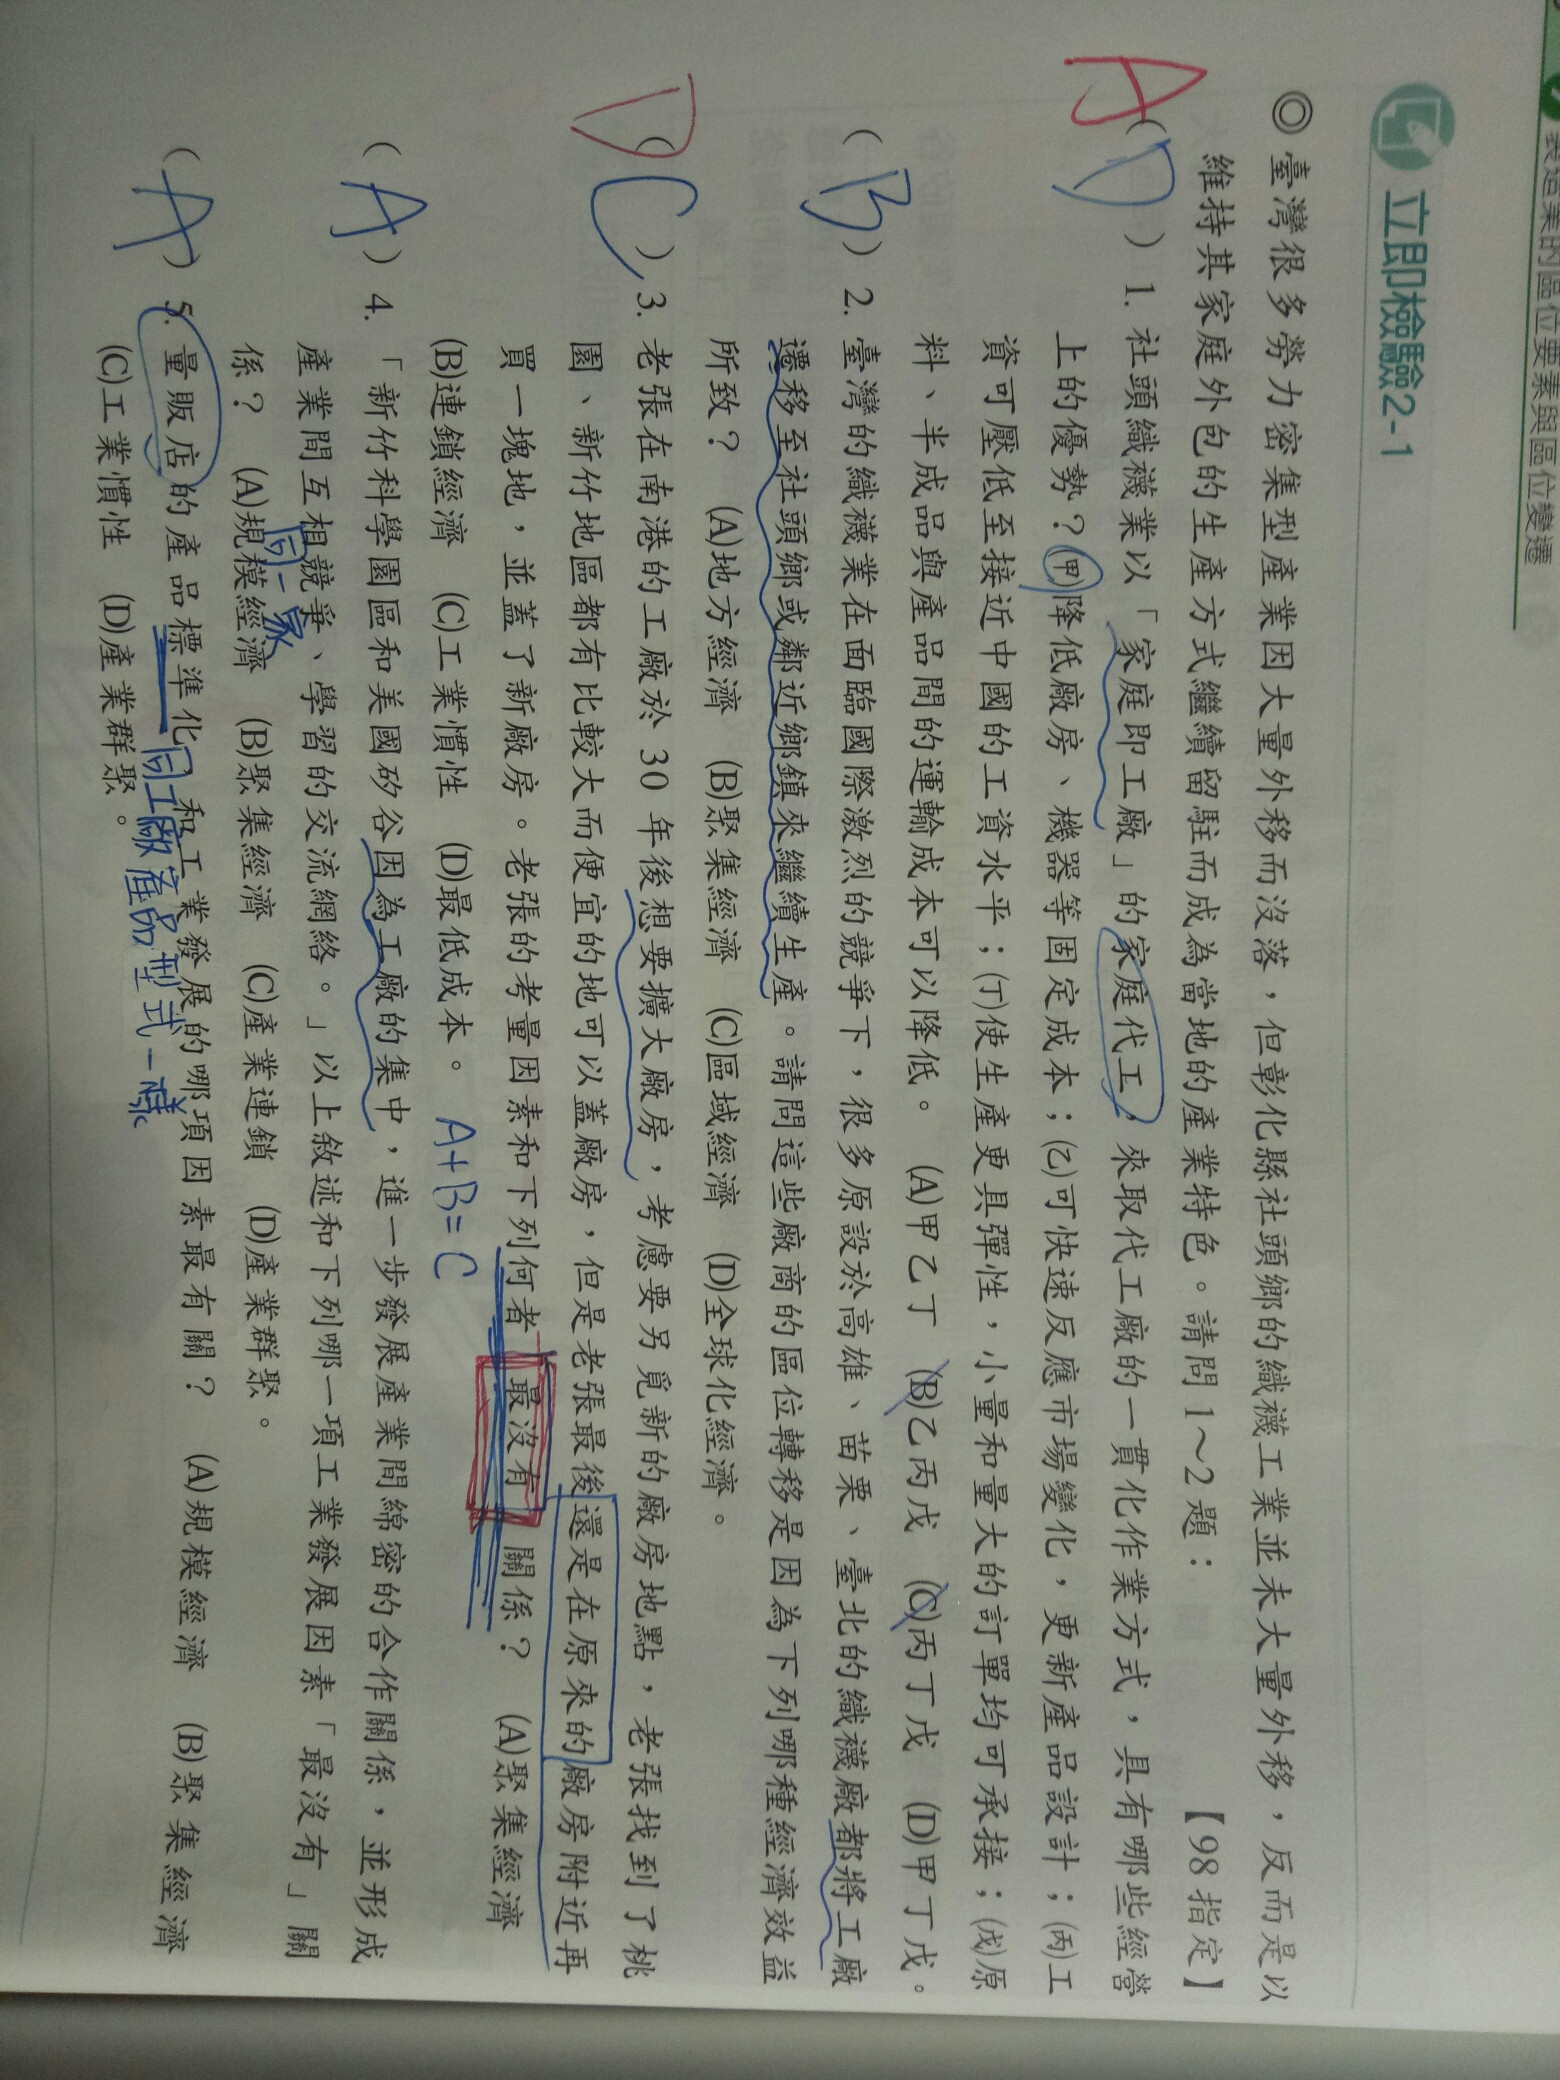 表短業的區位要素與區位變遷
立即檢驗2-1
◎臺灣很多勞力密集型產業因大量外移而沒落，但彰化縣社頭鄉的織襪工業並未大量外移，反而是以
維持其家庭外包的生產方式繼續留駐而成為當地的產業特色。請問1～2題： 【98指定】
A
( D ) 1. 社頭織襪業以「家庭即工廠」的家庭代工，來取代工廠的一貫化作業方式，具有哪些經營
上的優勢？(甲)降低廠房、機器等固定成本；(乙)可快速反應市場變化，更新產品設計；(丙)工
資可壓低至接近中國的工資水平；(丁)使生產更具彈性，小量和量大的訂單均可承接；(戊)原
料、半成品與產品間的運輸成本可以降低。 (A)甲乙丁 (B)乙丙戊 (C)丙丁戊 (D)甲丁戊。
( B ) 2. 臺灣的織襪業在面臨國際激烈的競爭下，很多原設於高雄、苗栗、臺北的織襪廠都將工廠
遷移至社頭鄉或鄰近鄉鎮來繼續生產。請問這些廠商的區位轉移是因為下列哪種經濟效益
所致？ (A)地方經濟 (B)聚集經濟 (C)區域經濟 (D)全球化經濟。
D
( C ) 3. 老張在南港的工廠於30年後想要擴大廠房，考慮要另覓新的廠房地點，老張找到了桃
園、新竹地區都有比較大而便宜的地可以蓋廠房，但是老張最後還是在原來的廠房附近再
買一塊地，並蓋了新廠房。老張的考量因素和下列何者「最沒有」關係？ (A)聚集經濟
(B)連鎖經濟 (C)工業慣性 (D)最低成本。 A+B=C
( A ) 4. 「新竹科學園區和美國矽谷因為工廠的集中，進一步發展產業間綿密的合作關係，並形成
產業間互相競爭、學習的交流網絡。」以上敘述和下列哪一項工業發展因素「最沒有」關
同一家
係？ (A)規模經濟 (B)聚集經濟 (C)產業連鎖 (D)產業群聚。
( A ) 5. 量販店的產品標準化，和工業發展的哪項因素最有關？ (A)規模經濟 (B)聚集經濟
同工廠產品型式一樣
(C)工業慣性 (D)產業群聚。